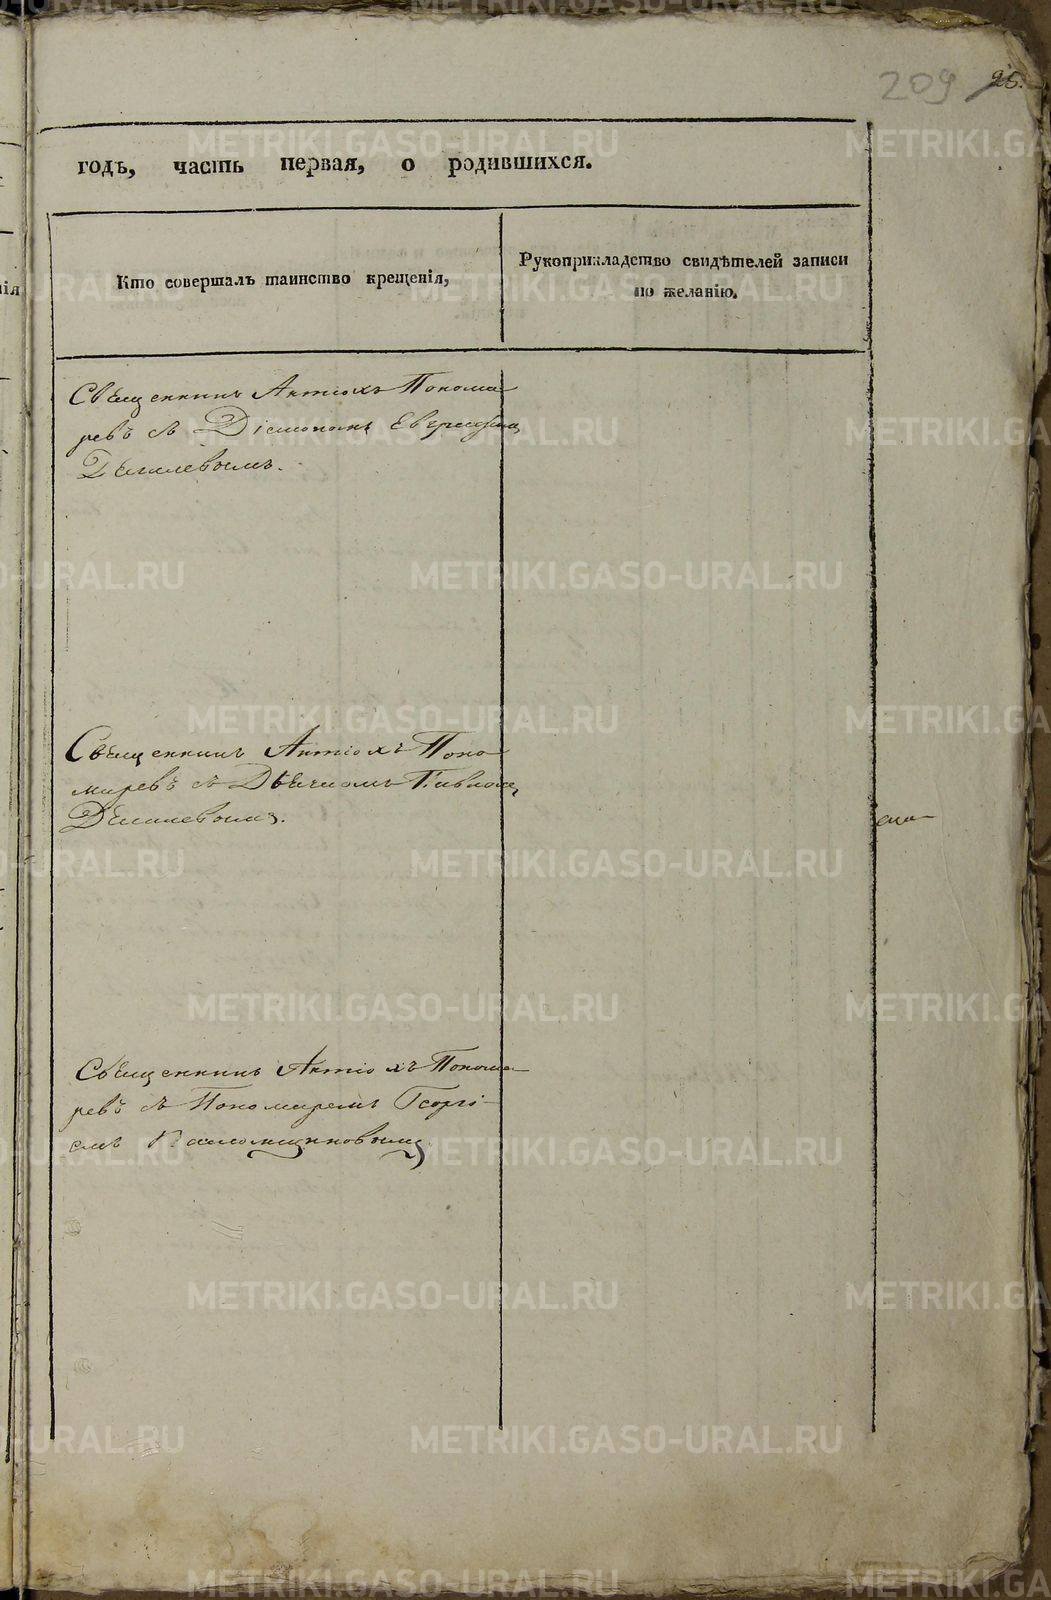 209 95.
годъ, часть первая, о родившихся.
Кто совершалъ таинство крещенія,
Рукоприкладство свидѣтелей записи
по желанію.
Священникъ Антіохъ Понома
ревъ съ Діакономъ
Священникъ Антіохъ Поно
маревъ съ Дьячкомъ
Священникъ Антіохъ Понома
ревъ съ Пономаремъ Георгі
емъ
METRIKI.GASO-URAL.RU